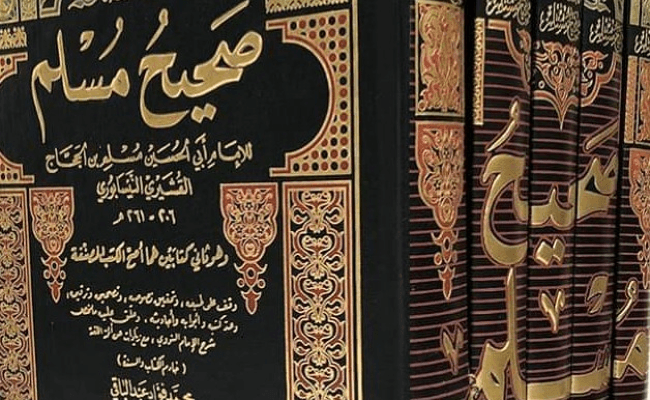 صحيح مسلم
للإمام أبي الحسين مسلم بن الحجاج
القشيري النيسابوري
٢٠٦ - ٢٦١ هـ
وهو ثاني كتابين هما أصح الكتب المصنفة
وقف على طبعه، وتحقيق نصوصه، وتصحيحه وترقيمه،
وعد كتبه وأبوابه وأحاديثه، وعلق عليه ملخص
شرح الإمام النووي، مع زيادات عن أئمة اللغة
(خادم الكتاب والسنة)
محمد فؤاد عبد الباقي
صحيح
مسلم